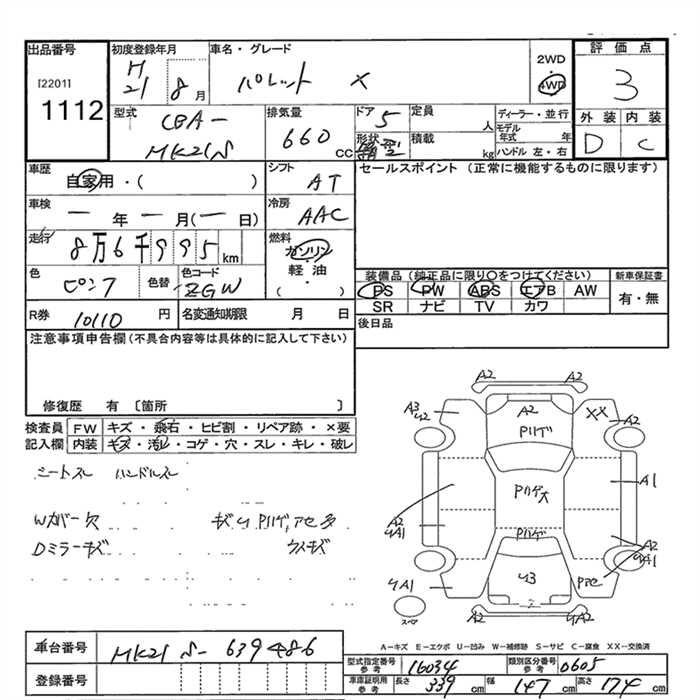 出品番号
[2201]
1112
初度登録年月
H
21 8月
車名・グレード
パレット X
2WD
・
4WD
評価点
3
外装 内装
D C
型式
CBA-
MK21S
排気量
660 CC
ドア 5
形状
定員 人
積載 kg
ディーラー・並行
モデル年式 年
ハンドル 左・右
車歴
自家用・( )
シフト
AT
セールスポイント (正常に機能するものに限ります)
車検
ー年ー月(ー日)
冷房
AAC
走行
8万6千995km
燃料
ガソリン
・
軽油
( )
色
ピンク
色替
色コード
ZGW
装備品(純正品に限り○をつけてください)
PS PW ABS エアB AW
SR ナビ TV カワ
新車保証書
有・無
R券 10110 円
名変通知期限 月 日
後日品
注意事項申告欄(不具合内容等は具体的に記入して下さい)
修復歴 有 〔箇所 〕
検査員記入欄
FW キズ・飛石・ヒビ割・リペア跡・×要
内装 キズ・汚レ・コゲ・穴・スレ・キレ・破レ
シートスレ ハンドルスレ
Wカバー欠 キズU Pハゲ,アセ多
Dミラーキズ ウスキズ
A2
A3
U2
A2
XX
A2
Pハゲ
A1
Pハゲ大
A2
UA1
Pハゲ
A2
UA1
UA1
U3
Pアセ
A2
UA2
スペア
A-キズ E-エクボ U-凹み W-補修跡 S-サビ C-腐食 XX-交換済
車台番号 MK21S-639486
登録番号
型式指定番号
参考
16034
類別区分番号
参考
0605
車庫証明用
参考
長さ 339 cm 幅 147 cm 高さ 174 cm